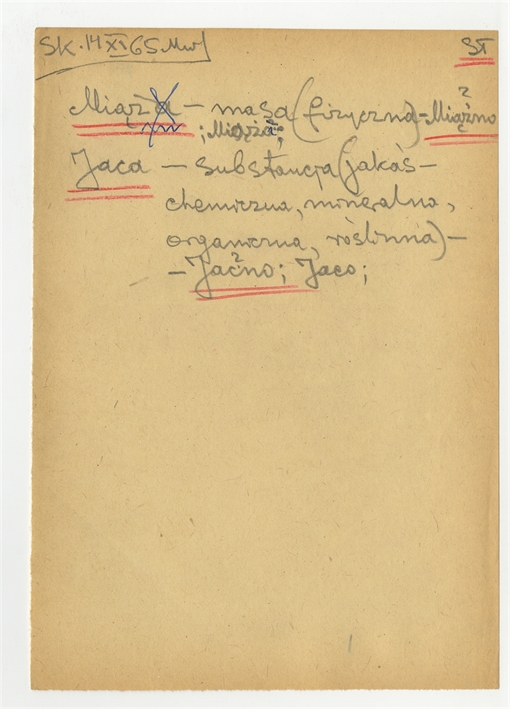 SK. 14 XI 65 Mw
SŁ
Miąża – masa (fizyczna) = Miąźno
; Miąża;
Jaca – substancja (jakaś –
chemiczna, mineralna,
organiczna, roślinna) –
– Jaćno; Jaco;